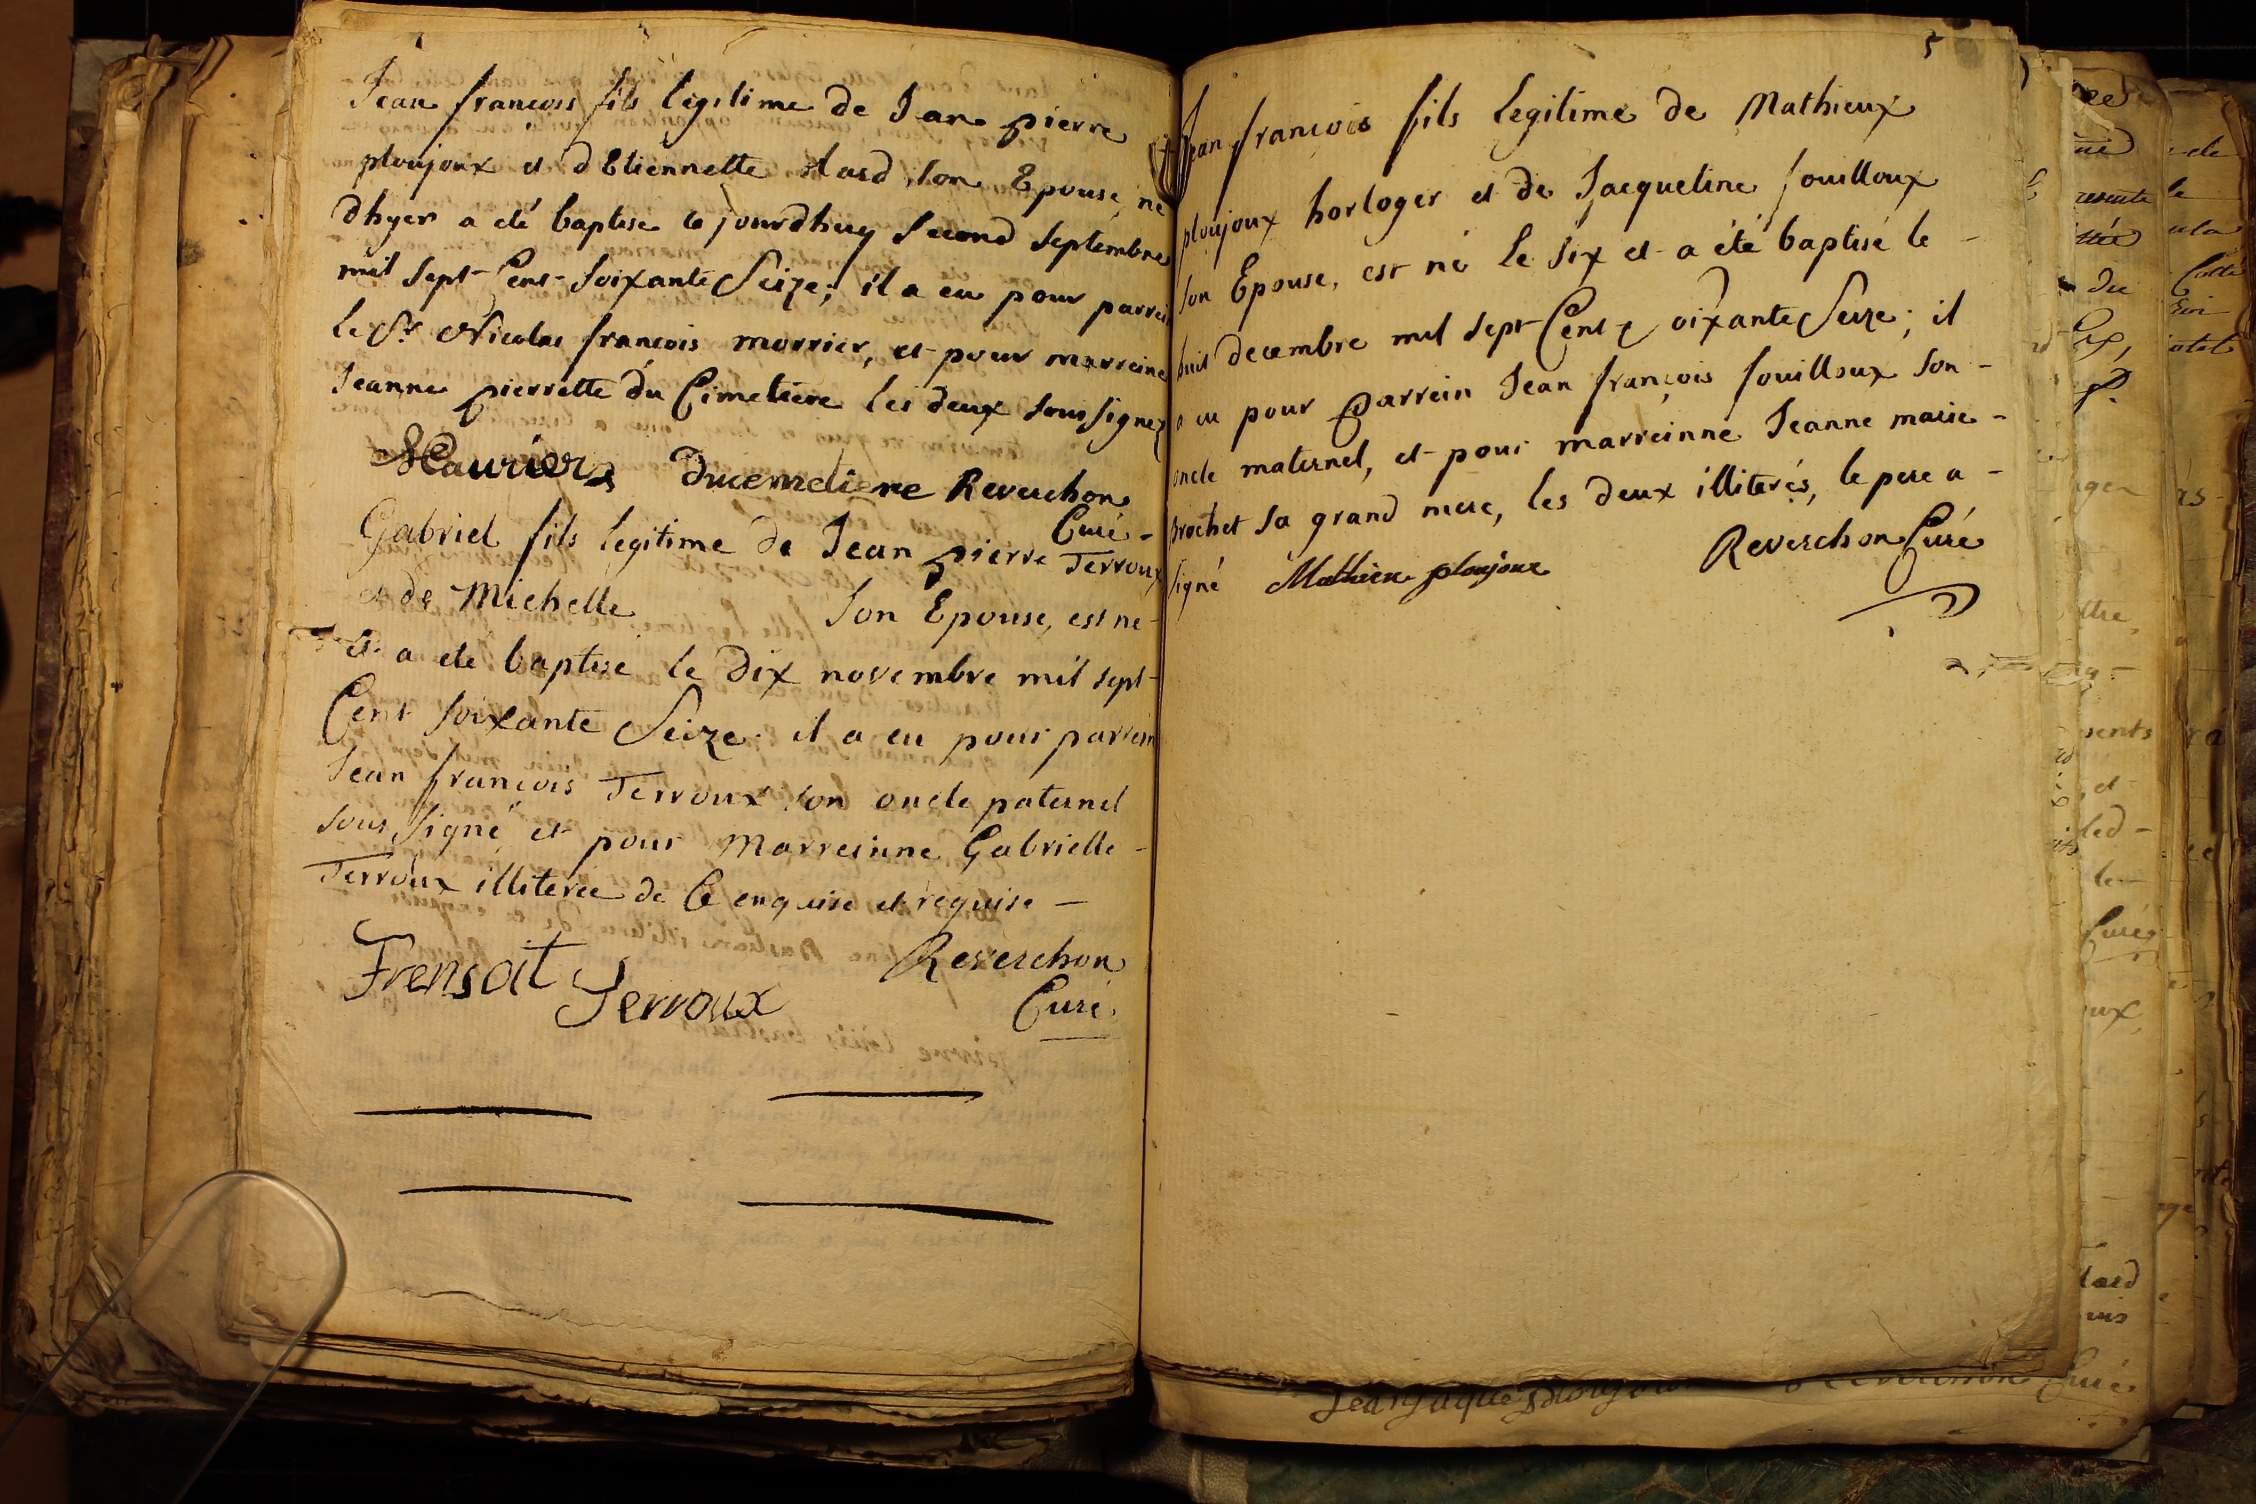 Jean françois fils legitime de Jean pierre
ploujoux et d Etiennette Hasd son Epouse, né
dhyer a eté baptise ce jourdhuy second septembre
mil sept Cent soixante Seize; il a eu pour parrein
le Sr. Nicolas françois morrier, et pour marreine
Jeanne pierrette du Cimetiere les deux soussignez
Maurier Ducemetiere Reverchon
Curé -
Gabriel fils legitime de Jean pierre Terroux
et de Michelle son Epouse, est né
et a eté baptisé le dix novembre mil sept
Cent soixante Seize. il a eu pour parrein
Jean françois Terroux son oncle paternel
sous signé et pour Marreinne Gabrielle -
Terroux illiterée de Ce enquise et requise -
Frensoit Terroux Reverchon
Curé.
5
Jean françois fils legitime de Mathieux
ploujoux horloger et de Jacqueline fouilloux
son Epouse, est né le six et a été baptisé le -
huit decembre mil sept Cent soixante Seize; il
a eu pour parrein Jean françois fouilloux son -
oncle maternel, et pour marreinne Jeanne marie -
Brochet sa grand mere, les deux illiterés, le pere a -
signé Mathieu ploujoux Reverchon Curé
Jean Jaque Reverchon Curé